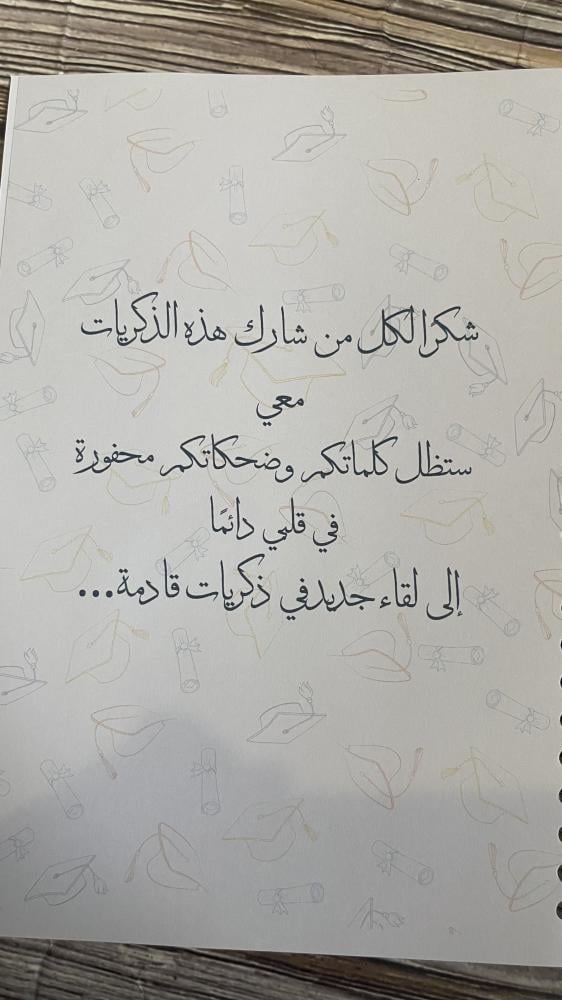 شكرًا لكل من شارك هذه الذكريات
معي
ستظل كلماتكم وضحكاتكم محفورة
في قلبي دائمًا
إلى لقاء جديد في ذكريات قادمة...